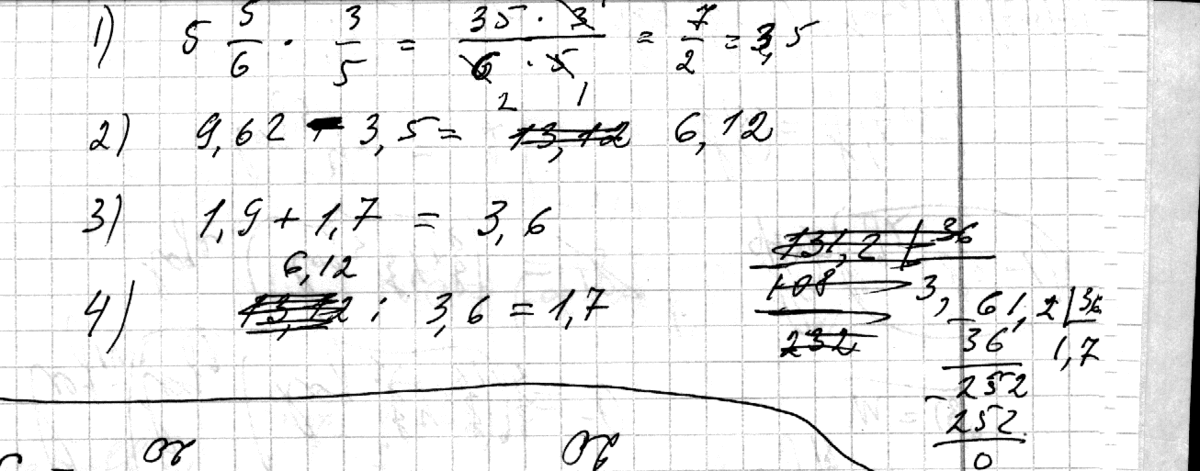 1) 5 5/6 · 3/5 = 35 · 3 / 6 · 5 = 7/2 = 3,5
2 1
2) 9,62 - 3,5 = 13,12 6,12
3) 1,9 + 1,7 = 3,6
6,12
4) 13,12 : 3,6 = 1,7
131,2 | 36
108 3,
232
- 61,2 | 36
36 1,7
- 252
252
0